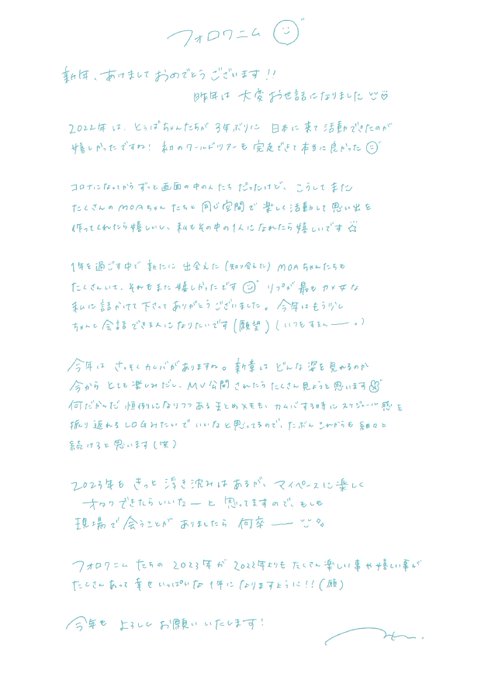 フォロワニム
新年、あけましておめでとうございます!!
昨年は 大変お世話になりました
2022年は、とぅばちゃんたちが 3年ぶりに 日本に来て 活動できたのが
嬉しかったですね! 初のワールドツアーも 完走できて 本当に良かった
コロナになってから ずっと画面の中の人たち だったけど、こうして また
たくさんのMOAちゃん たちと 同じ空間で 楽しく活動して 思い出を
作ってくれたら嬉しいし、私もその中の1人になれたら嬉しいです☆
1年を過ごす中で 新たに 出会えた(知り会えた) MOAちゃんたちも
たくさんいて、それもまた 嬉しかったです リプが 最も カオスな
私に話かけて下さって ありがとうございました。今年はもう少し
ちゃんと 会話できる人になりたいです(願望)(いつもすみません ー 。)
今年は さっそく カムバがありますね。新章は どんな姿を見れるのか
今から とても楽しみだし、MV公開 されたら たくさん見ようと思います
何だかんだ 恒例になりつつある まとめメモも、カムバする時に スケジュール感を
振り返れる LOGみたいで いいなと 思ってるので、たぶん これからも 細々と
続けると思います(笑)
2023年も きっと 浮き沈みはあるが、マイペースに楽しく
オタク できたらいいなーと 思ってますので、もしも
現場で 会うことが ありましたら 何卒ー
フォロワニム たちの 2023年が 2022年よりも たくさん 楽しい事や嬉しい事が
たくさんあって 幸せいっぱいな 1年に なりますように!!(願)
今年も よろしく お願いいたします!